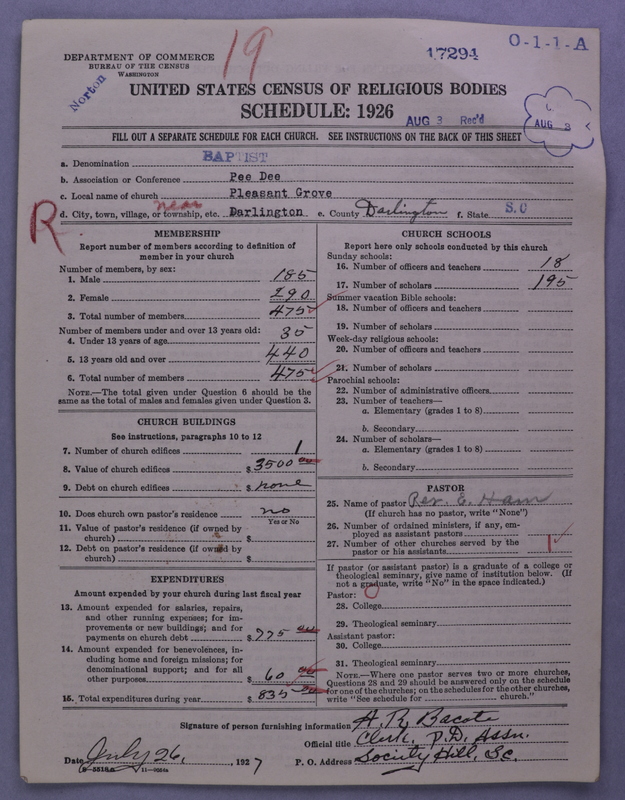 19
17294
O-1-1-A
DEPARTMENT OF COMMERCE
BUREAU OF THE CENSUS
WASHINGTON
Norton
UNITED STATES CENSUS OF RELIGIOUS BODIES
SCHEDULE: 1926
AUG 3 Rec'd
AUG 3
FILL OUT A SEPARATE SCHEDULE FOR EACH CHURCH. SEE INSTRUCTIONS ON THE BACK OF THIS SHEET
a. Denomination BAPTIST
b. Association or Conference Pee Dee
c. Local name of church Pleasant Grove
near
R
d. City, town, village, or township, etc. Darlington e. County Darlington f. State S.C
MEMBERSHIP
Report number of members according to definition of
member in your church
Number of members, by sex:
1. Male 185
2. Female 290
3. Total number of members 475
Number of members under and over 13 years old:
4. Under 13 years of age 35
5. 13 years old and over 440
6. Total number of members 475
NOTE.—The total given under Question 6 should be the
same as the total of males and females given under Question 3.
CHURCH BUILDINGS
See instructions, paragraphs 10 to 12
7. Number of church edifices 1
8. Value of church edifices $ 3500 00
9. Debt on church edifices $ none
10. Does church own pastor's residence no
Yes or No
11. Value of pastor's residence (if owned by
church) $
12. Debt on pastor's residence (if owned by
church) $
EXPENDITURES
Amount expended by your church during last fiscal year
13. Amount expended for salaries, repairs,
and other running expenses; for im-
provements or new buildings; and for
payments on church debt $ 775 00
14. Amount expended for benevolences, in-
cluding home and foreign missions; for
denominational support; and for all
other purposes $ 60 00
15. Total expenditures during year $ 835 00
CHURCH SCHOOLS
Report here only schools conducted by this church
Sunday schools:
16. Number of officers and teachers 18
17. Number of scholars 195
Summer vacation Bible schools:
18. Number of officers and teachers
19. Number of scholars
Week-day religious schools:
20. Number of officers and teachers
21. Number of scholars
Parochial schools:
22. Number of administrative officers
23. Number of teachers—
a. Elementary (grades 1 to 8)
b. Secondary
24. Number of scholars—
a. Elementary (grades 1 to 8)
b. Secondary
PASTOR
25. Name of pastor Rev. E. Ham
(If church has no pastor, write "None")
26. Number of ordained ministers, if any, em-
ployed as assistant pastors
27. Number of other churches served by the
pastor or his assistants 1
If pastor (or assistant pastor) is a graduate of a college or
theological seminary, give name of institution below. (If
not a graduate, write "No" in the space indicated.)
Pastor:
28. College
29. Theological seminary
Assistant pastor:
30. College
31. Theological seminary
NOTE.—Where one pastor serves two or more churches,
Questions 28 and 29 should be answered only on the schedule
for one of the churches; on the schedules for the other churches,
write "See schedule for church."
Signature of person furnishing information A. R. Bacote
Official title Clerk. P.D. Assn.
Date July 26, 1927 P. O. Address Society Hill, S.C.
11—